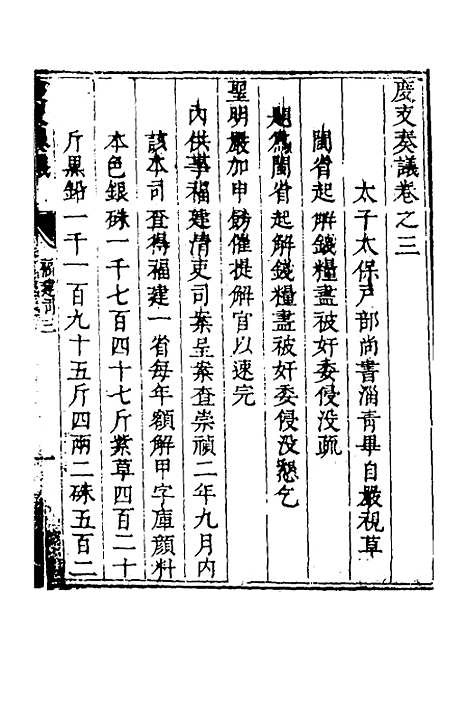 度支奏議卷之三
太子太保戶部尚書淄青畢自嚴視草
閩省起解錢糧盡被奸委侵没疏
題為閩省起解錢糧盡被奸委侵没懇乞
聖明嚴加申飭催提解官以速完
內供事福建清吏司案呈案查崇禎二年九月內
該本司查得福建一省每年額解甲字庫顏料
本色銀硃一千七百四十七斤紫草四百二十
斤黑鉛一千一百九十五斤四兩二硃五百二
福建司三